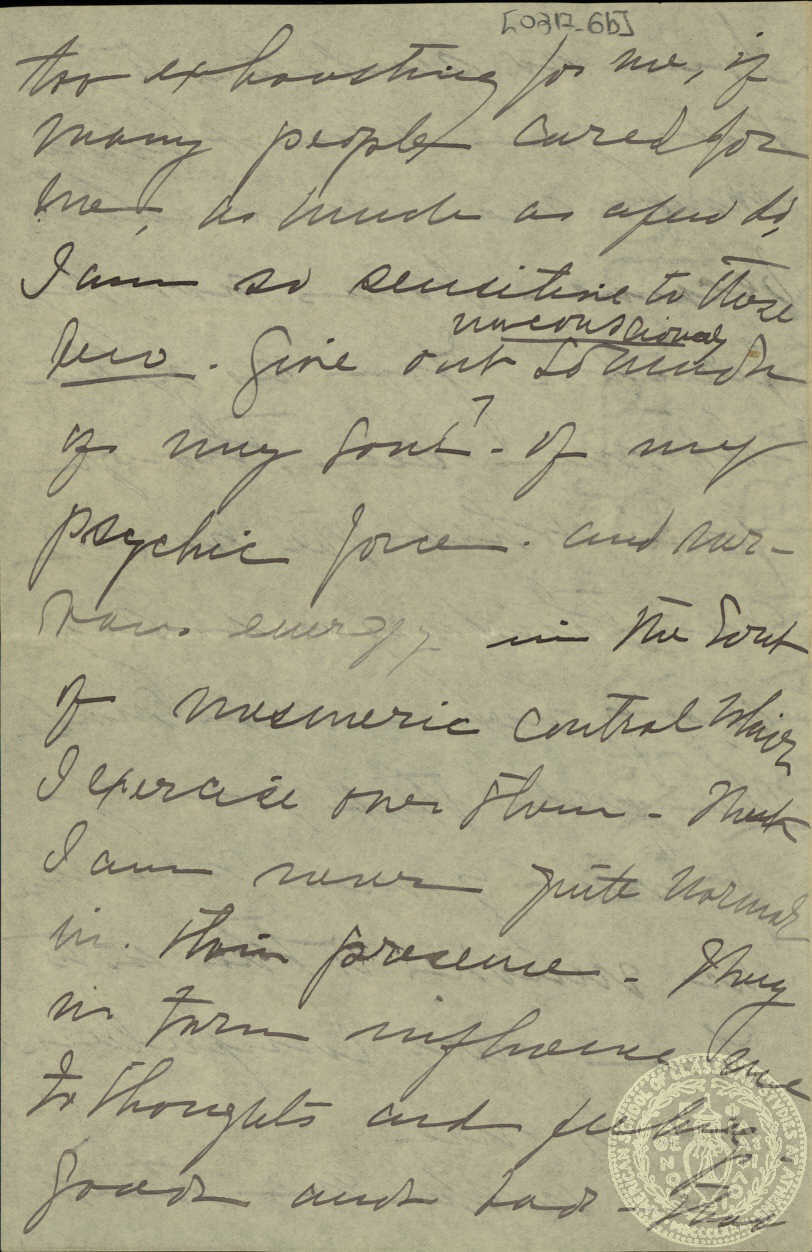 [0317-6b]
too exhausting for me, if
many people cared for
me, as much as a few do,
I am so sensitive to those
unconsciously
few. Give out so much
of my soul - of my
psychic force. and ner-
vous energy in the sort
of mesmeric control which
I exercise over them - that
I am never quite normal
in their presence - They
in turn influence me
to thoughts and feelings -
good and bad -
AMERICAN SCHOOL OF CLASSICAL STUDIES AT ATHENS